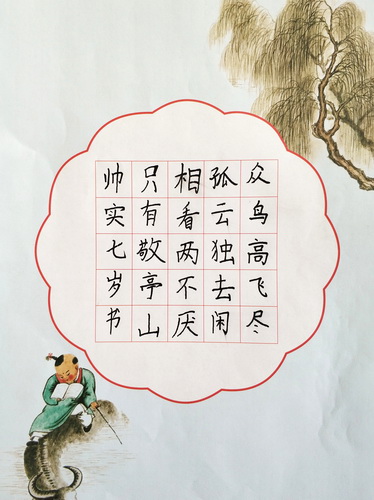 众鸟高飞尽
孤云独去闲
相看两不厌
只有敬亭山
帅实七岁书